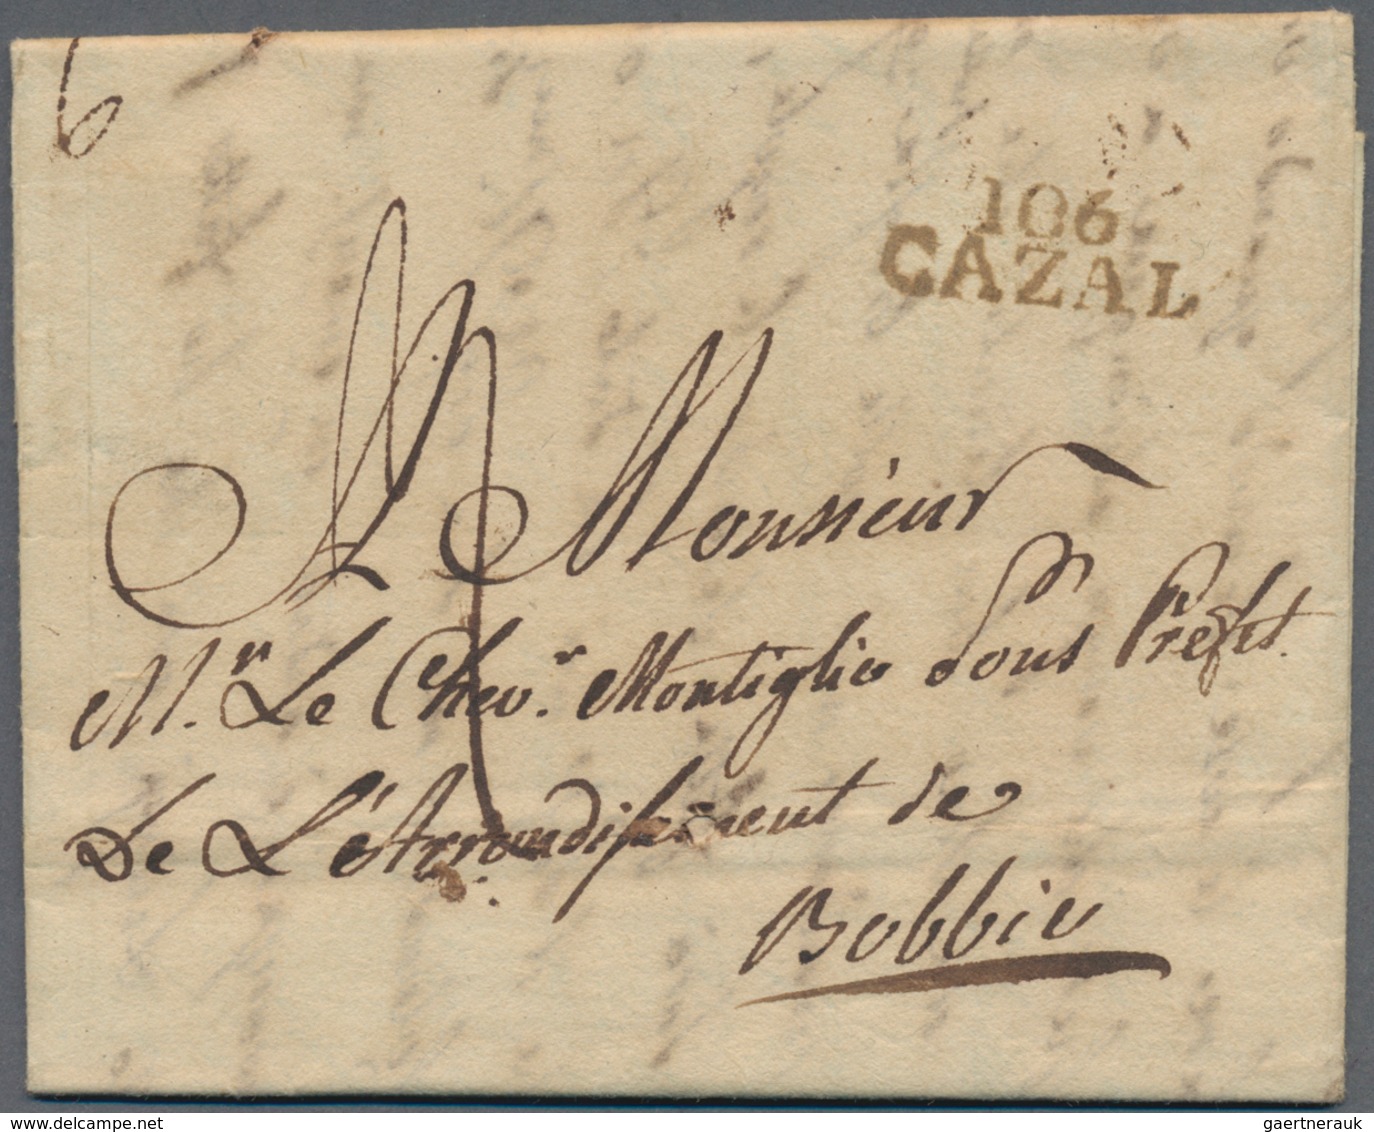 6
106
CAZAL
A Monsieur
Mr. Le Chevr. Montiglio Sous Préfet.
De L'Arrondissement de
Bobbio
gaertnerauk